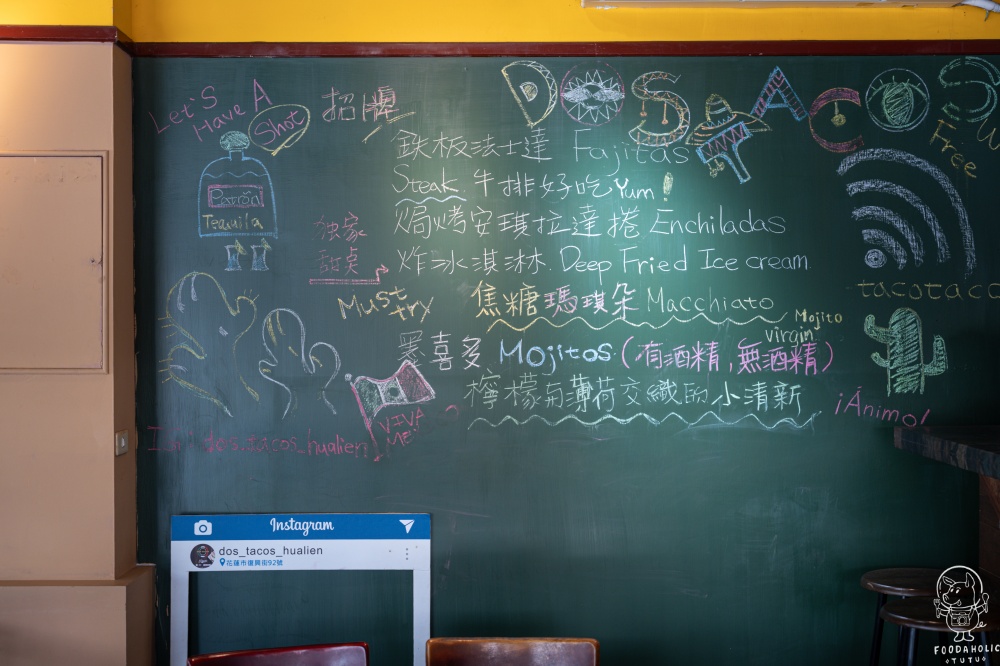 Let's Have A Shot
招牌
DOS TACOS
鉄板法士達 Fajitas
Steak 牛排好吃 Yum!
焗烤安琪拉達捲 Enchiladas
独家甜点
炸冰淇淋. Deep Fried Ice cream
Must try
焦糖瑪琪朵 Macchiato
Mojito
virgin
墨喜多 Mojitos (有酒精,無酒精)
檸檬與薄荷交織的小清新
Patron
Tequila
VIVA
ME
IG: dos_tacos_hualien
Free
tacotaco
¡Ánimo!
Instagram
dos_tacos_hualien
花蓮市復興街92號
FOODAHOLIC
TUTU